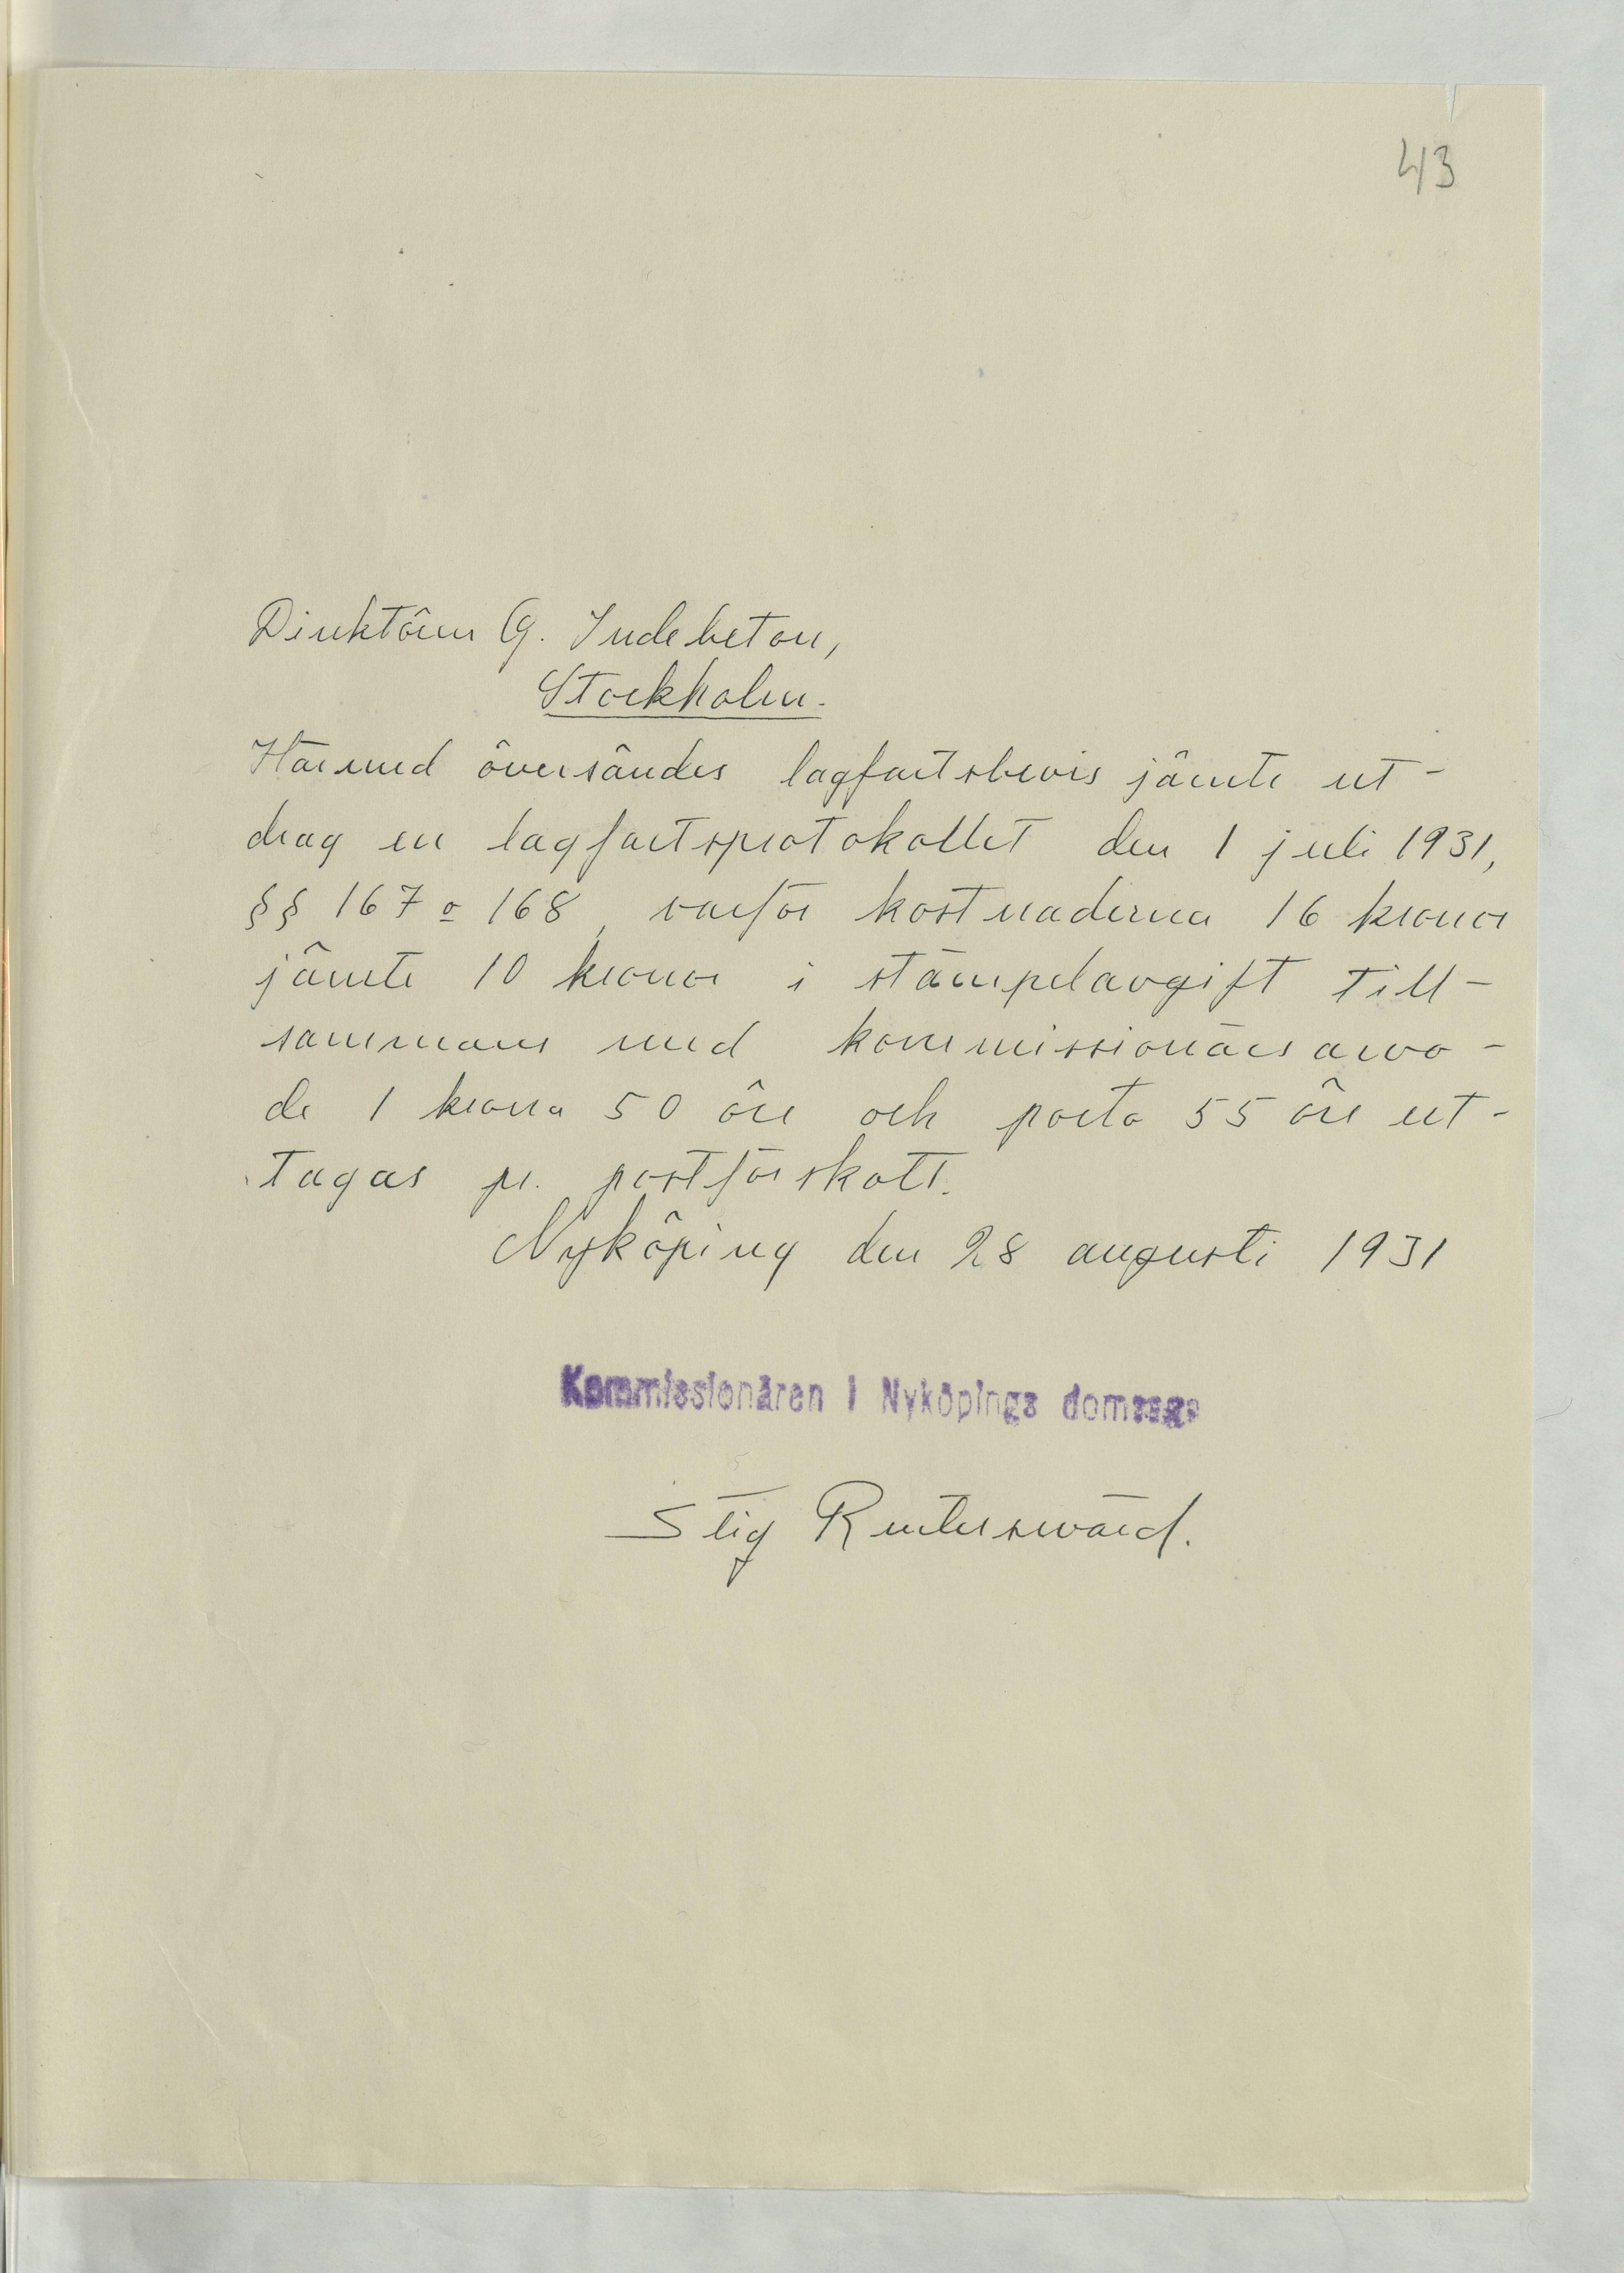 43
Direktören G. Indebetou,
Stockholm.
Härmed översändes lagfartsbevis jämte ut-
drag ur lagfartsprotokollet den 1 juli 1931,
§§ 167 o 168, varför kostnaderna 16 kronor
jämte 10 kronor i stämpelavgift till-
sammans med kommissionärsarvo-
de 1 krona 50 öre och porto 55 öre ut-
tagas pr. postförskott.
Nyköping den 28 augusti 1931
Kommissionären i Nyköpings domsaga
Stig Reuterswärd.